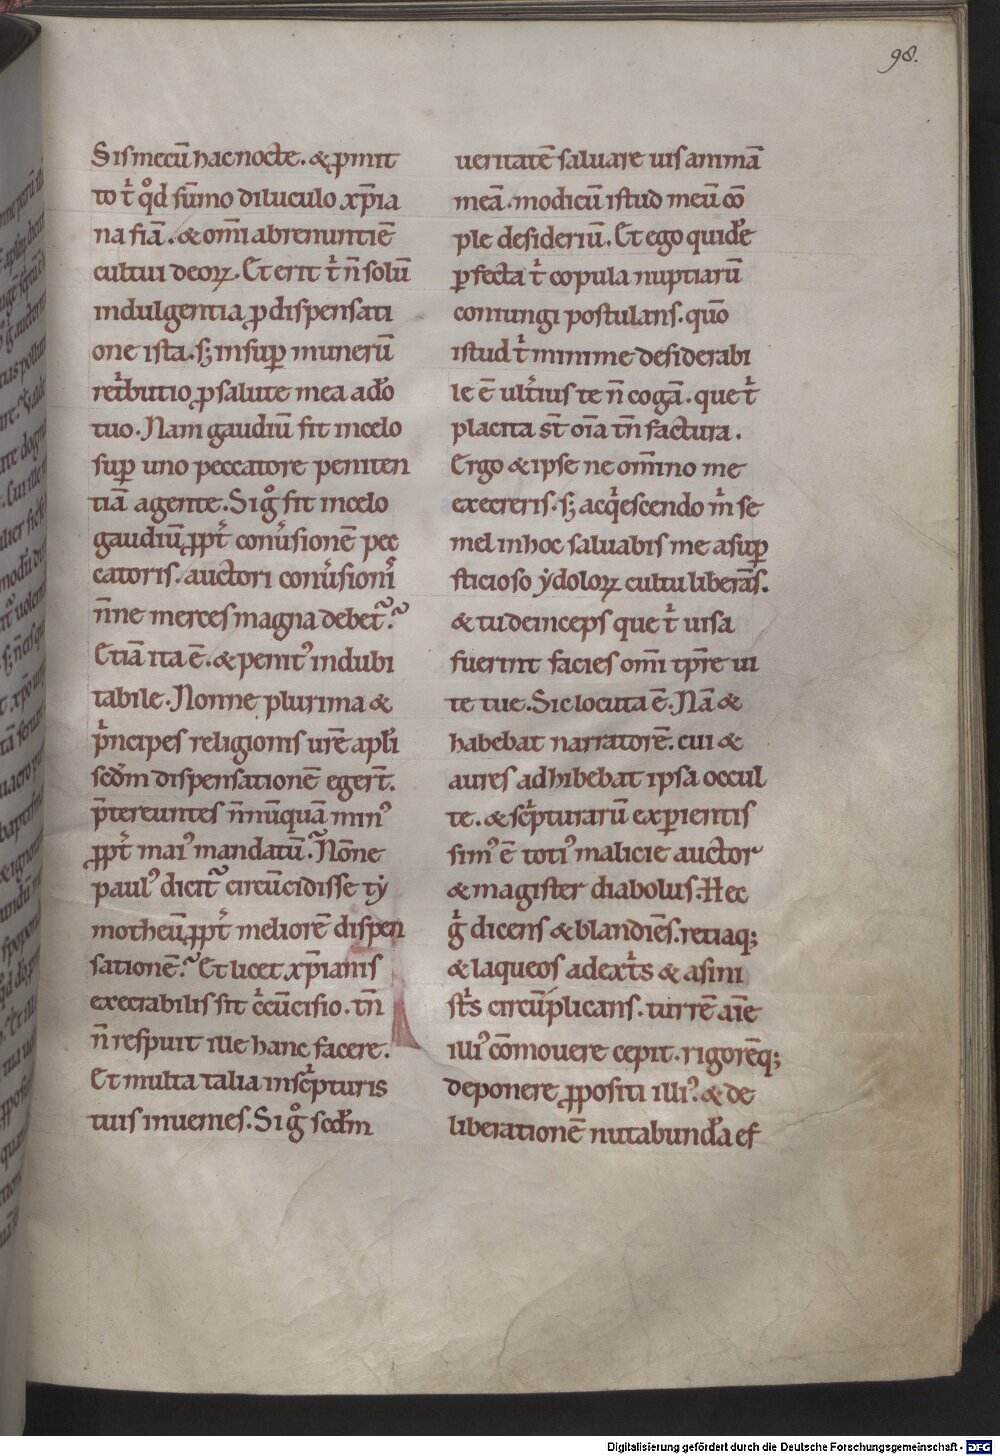 98.
Sis mecū hac nocte. & ꝓmit
to t̉ qđ sūmo diluculo xp̄ia
na fiā. & om̄i abrenuntiē
cultui deoꝝ. Et erit t̉ n̄ solū
indulgentia ꝓ dispensati
one ista. sꝫ insuꝑ munerū
ret̉butio ꝓ salute mea a dō
tuo. Nam gaudiū fit in celo
suꝑ uno peccatore peniten
tiā agente. Si gͦ fit in celo
gaudiū ꝓpt̉ conu̓sionē pec
catoris. auctori conu̓sioni̓
n̄ne merces magna debet᷑?
Etiā ita ē. & penitꝰ indubi
tabile. Nonne plurima &
pͥncipes religionis ur̄e apl̓i
scd̄m dispensationē egert̄.
p̄tereuntes n̄nūquā minꝰ
ꝓpt̉ maiꝰ mandatū. Nōne
paulꝰ dicit᷑ circūcidisse ty
motheū ꝓpt̉ meliorē dispen
sationē? Et licet xp̄ianis
execrabilis sit cͥcūcisio. tn̄
n̄ respuit ille hanc facere.
Et multa talia in scͥpturis
tuis inuenies. Si gͦ scd̄m
ueritatē saluare uis animā
meā. modicū istud meū cō
ple desideriū. Et ego quidē
ꝑfecta t̉ copula nuptiarū
coniungi postulans. quō
istud t̉ minime desiderabi
le ē ult̉ius te n̄ cogā. que t̉
placita st̄ oīa tn̄ factura.
Ergo & ipse ne om̄ino me
execreris. sꝫ acqͥescendo m̓ se
mel in hoc saluabis me a suꝑ
sticioso ydoloꝝ cultu liberās.
& tu deinceps que t̉ uisa
fuerint facies om̄i tp̄re ui
te tue. Sic locuta ē. Nā &
habebat narratorē. cui &
aures adhibebat ipsa occul
te. & scͥpturarū exꝑientis
simꝰ ē totiꝰ malicie auctor
& magister diabolus. Hec
gͥ dicens & blandiēs. retiaq;
& laqueos a dext̉s & a sini
st̉s circūplicans. turrē aīe
illiꝰ cōmouere cepit. rigorēq;
deponere ꝓpositi illiꝰ. & de
liberationē nutabundā ef
Digitalisierung gefördert durch die Deutsche Forschungsgemeinschaft - DFG